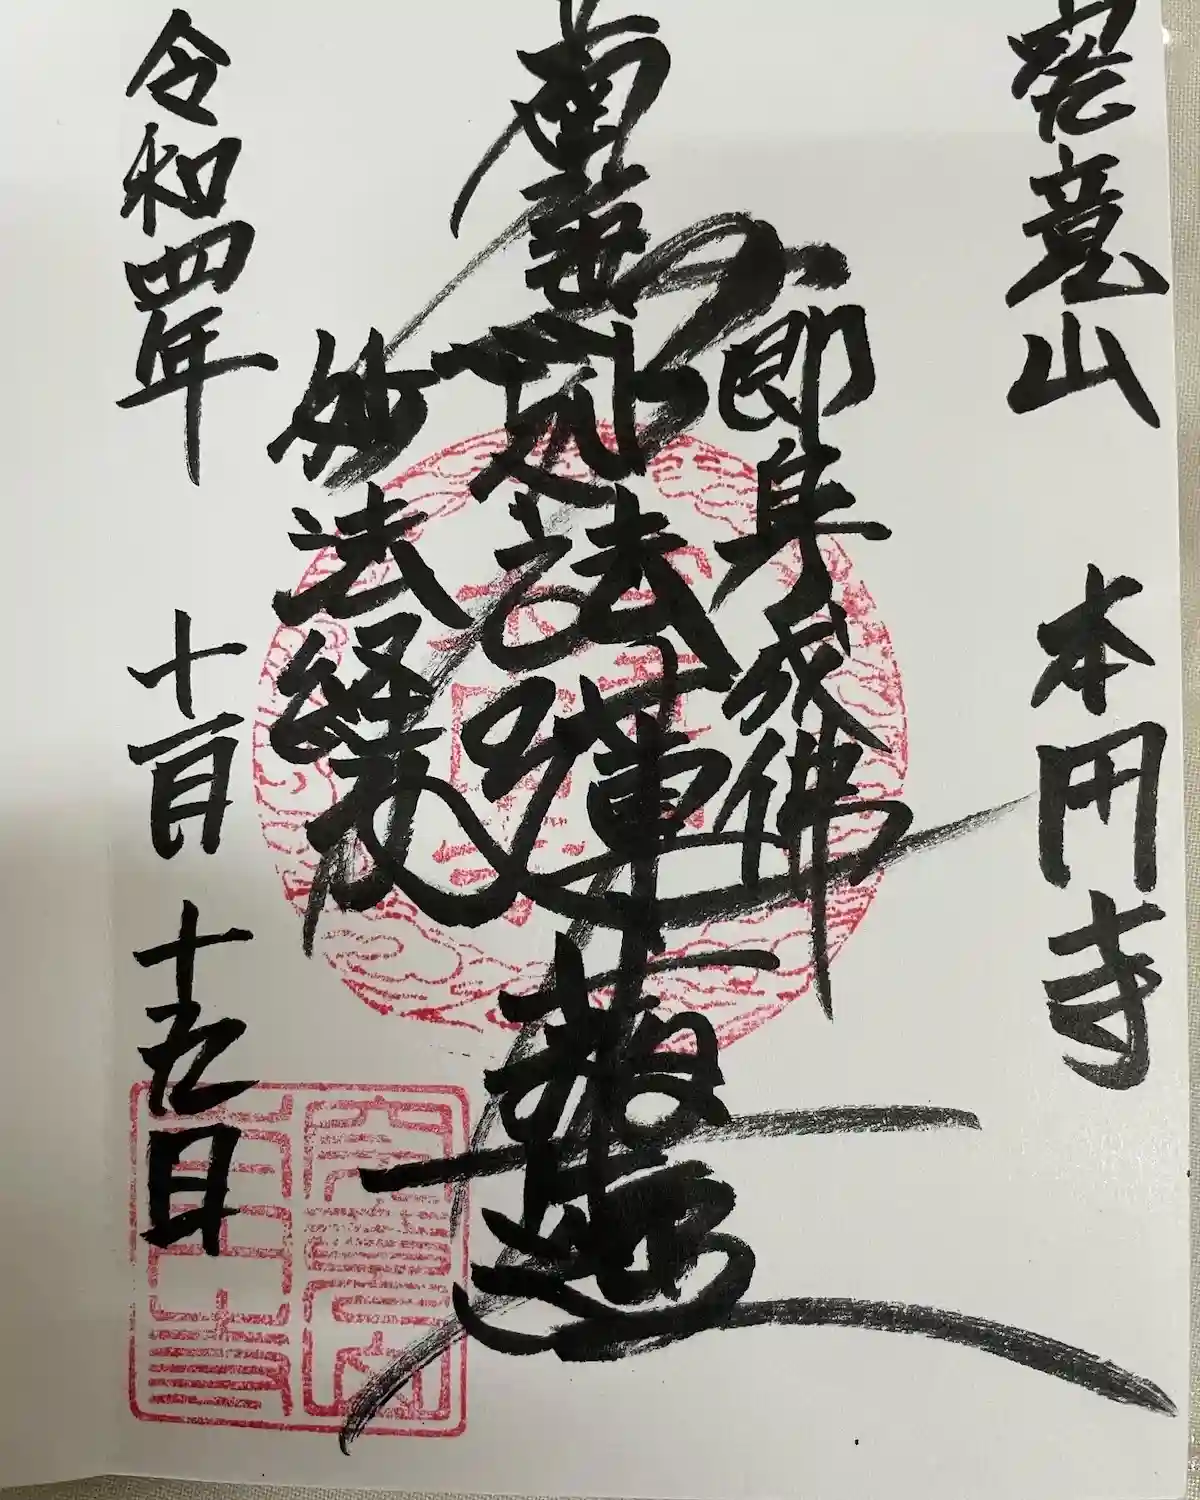 究竟山 本円寺
即身成佛
南無妙法蓮華経
妙法経力
令和四年 十一月 十五日